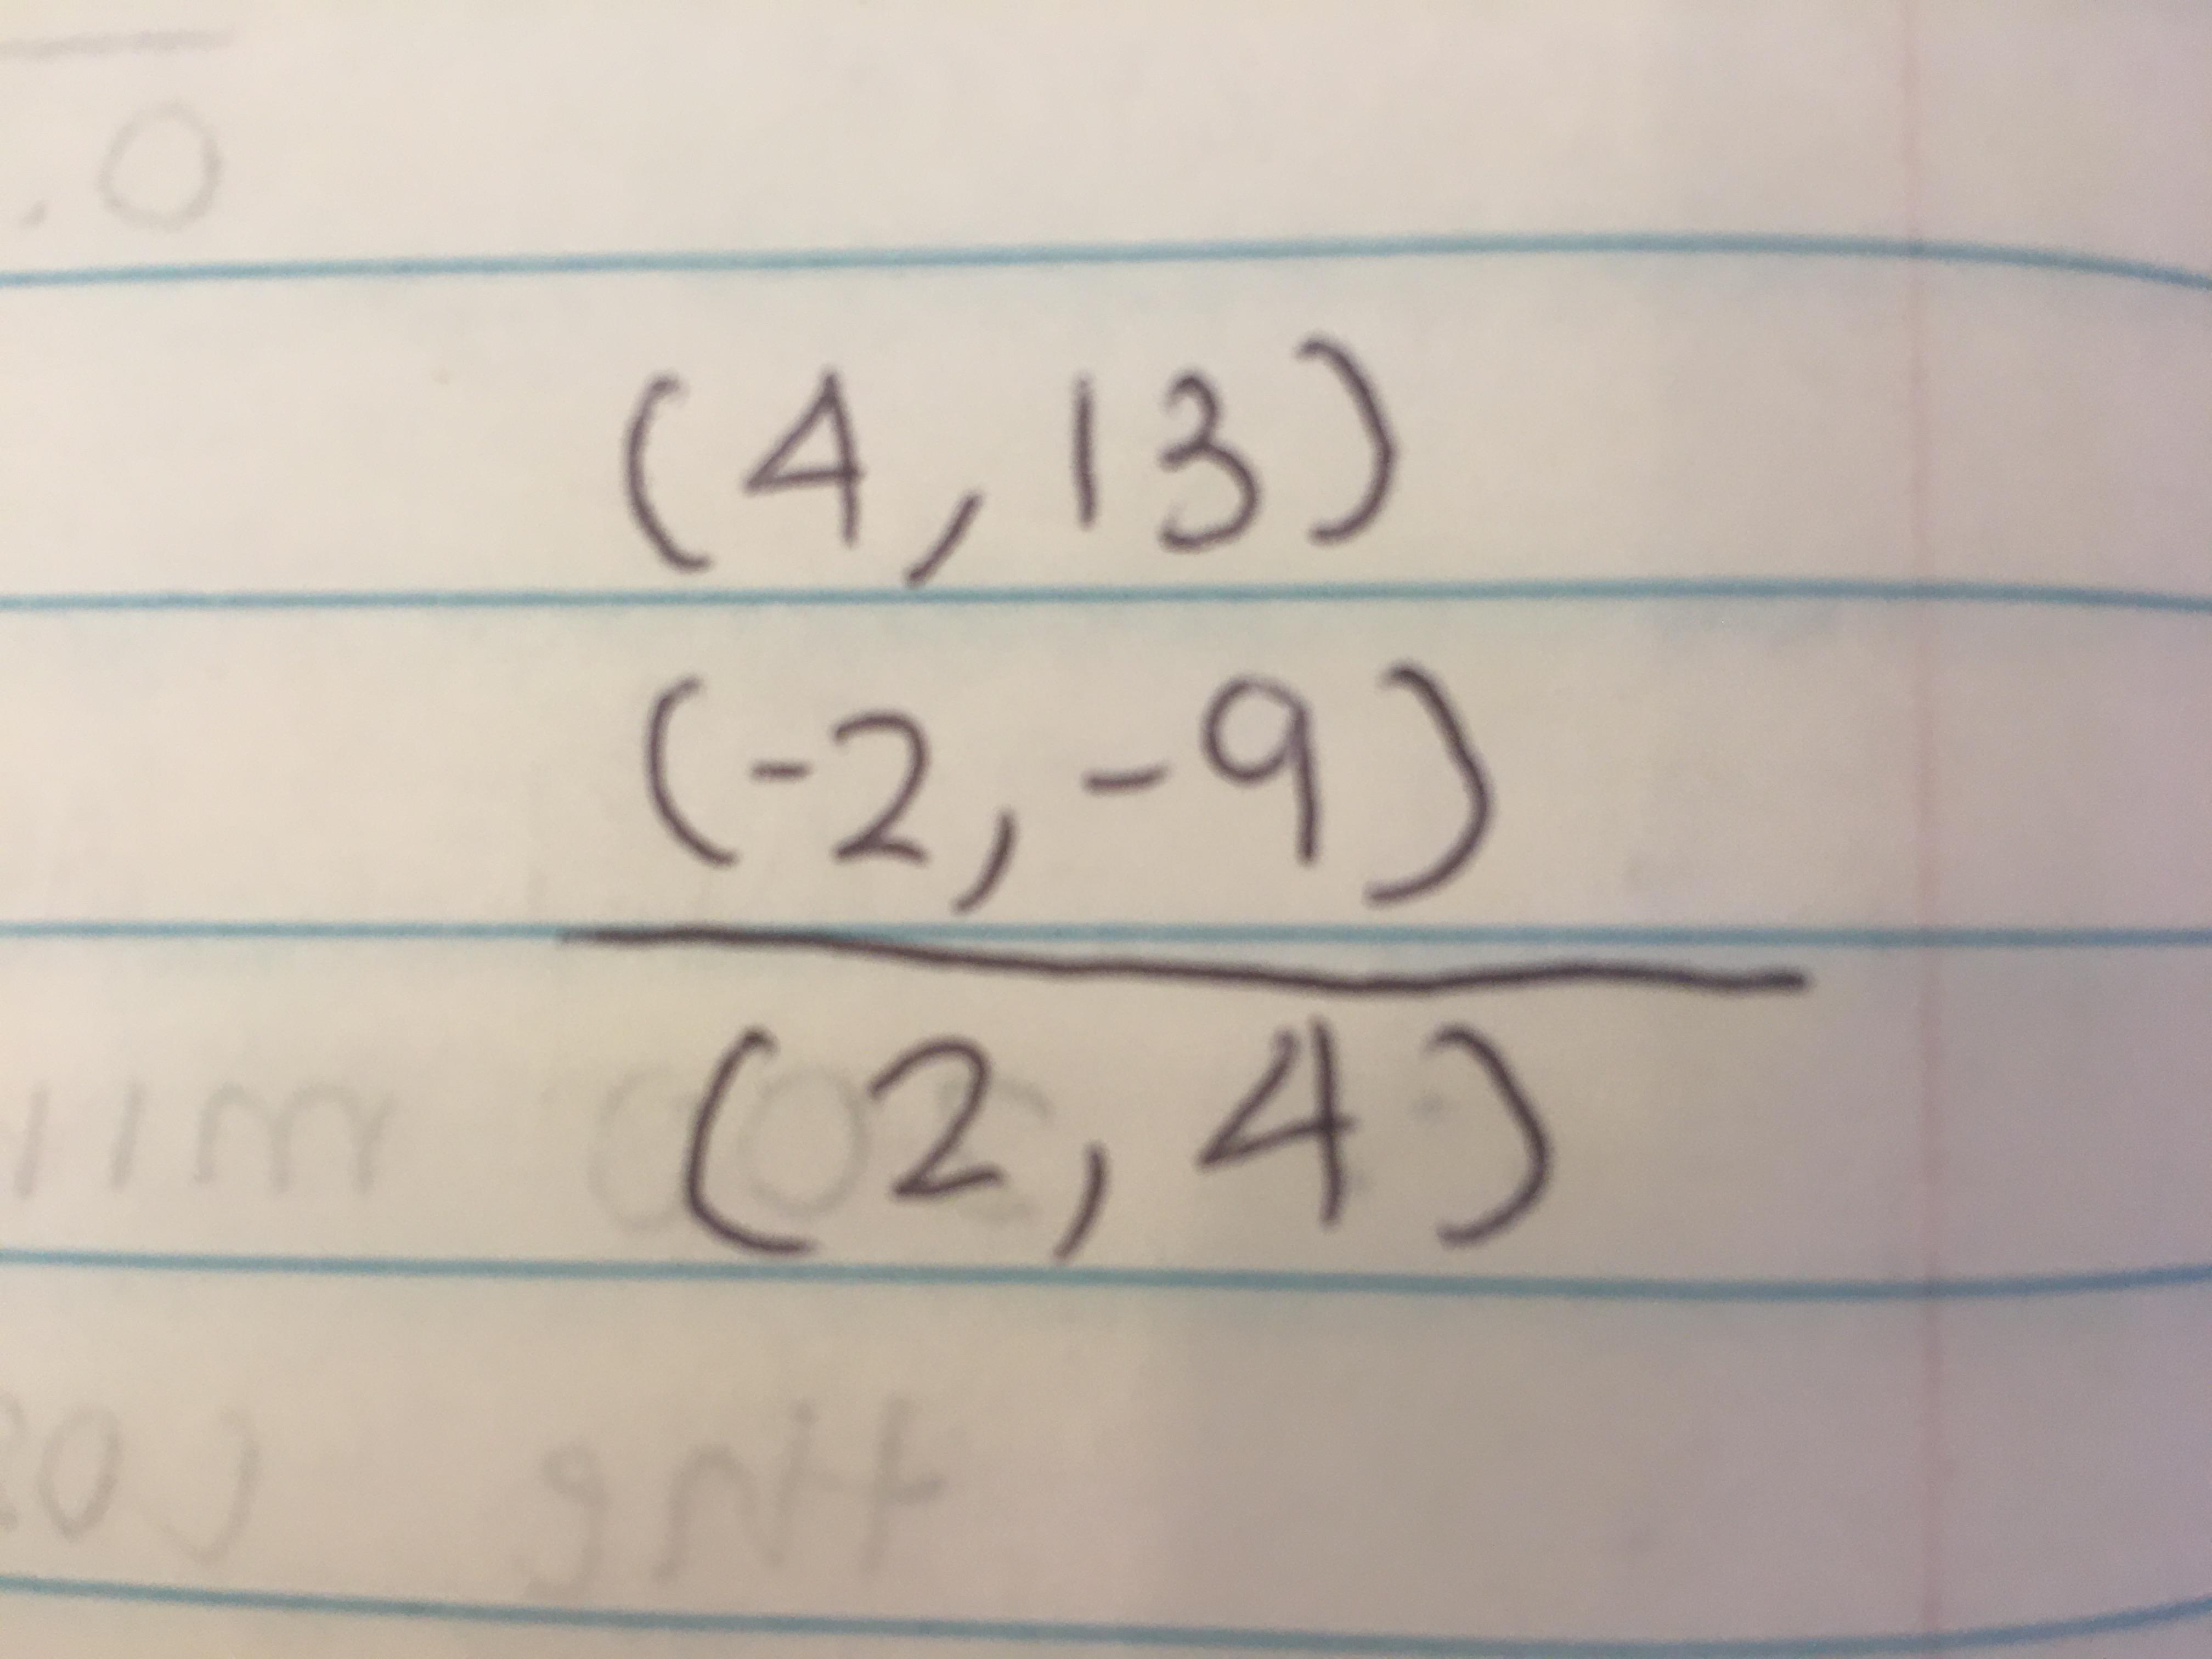 (4, 13)
(-2, -9)
(2, 4)